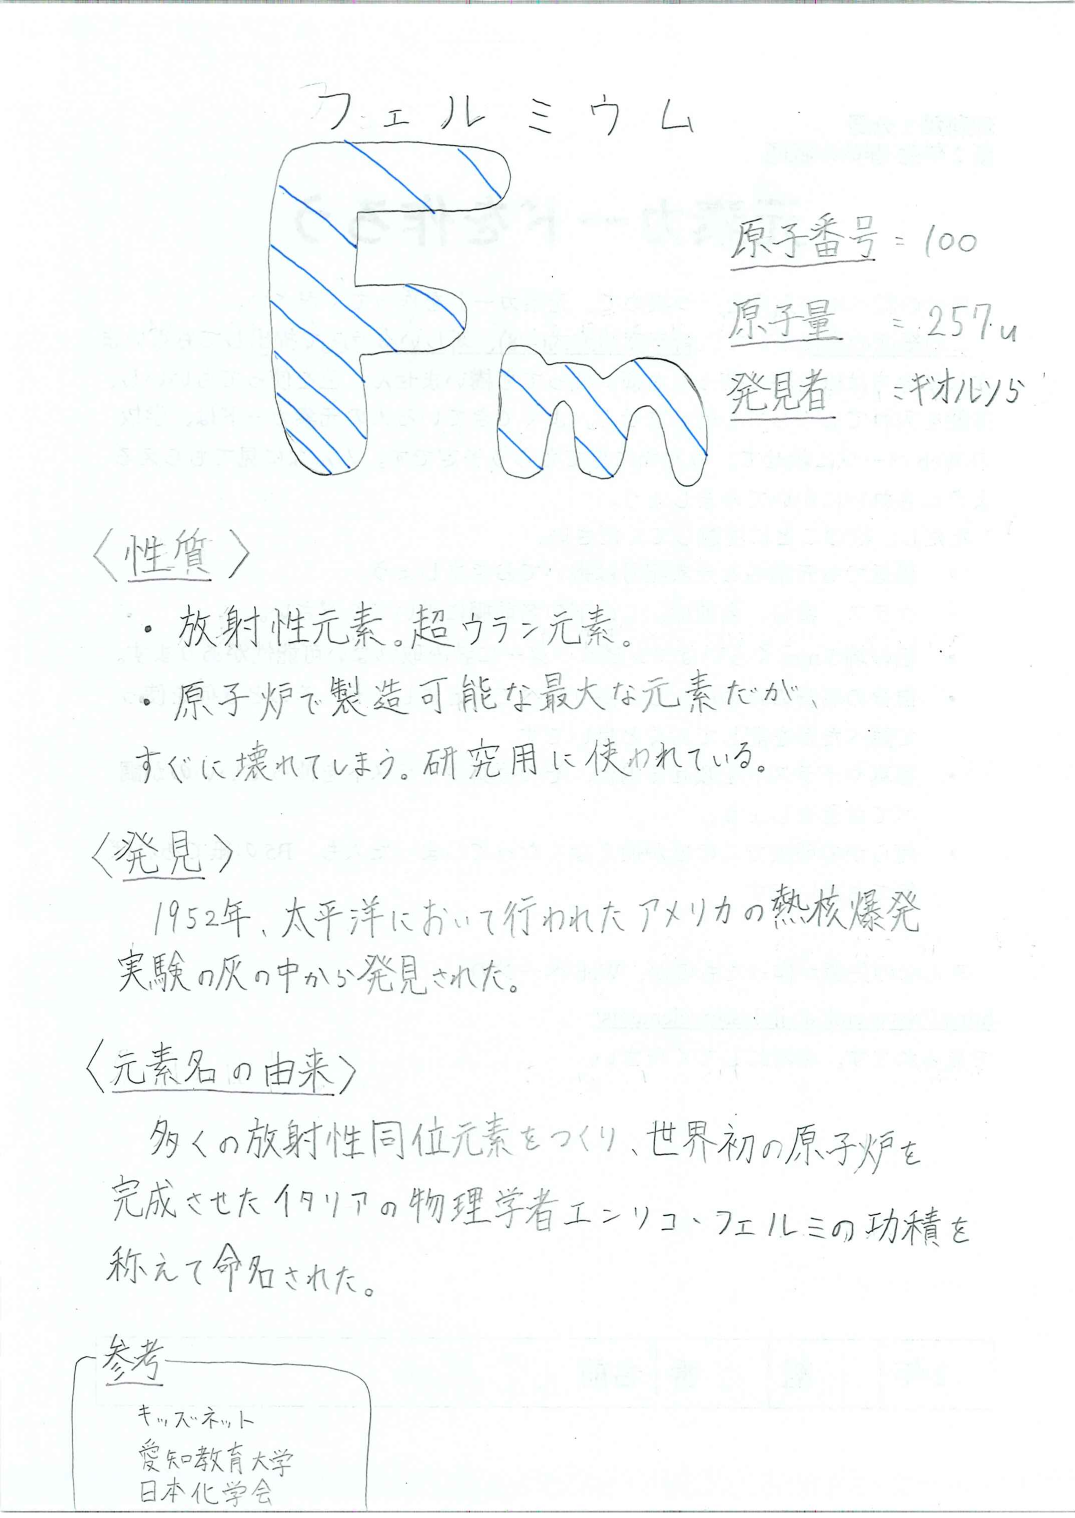 フェルミウム
Fm
原子番号 = 100
原子量 = 257u
発見者 = ギオルソら
〈性質〉
・放射性元素。超ウラン元素。
・原子炉で製造可能な最大な元素だが、
すぐに壊れてしまう。研究用に使われている。
〈発見〉
1952年、太平洋において行われたアメリカの熱核爆発
実験の灰の中から発見された。
〈元素名の由来〉
多くの放射性同位元素をつくり、世界初の原子炉を
完成させたイタリアの物理学者エンリコ・フェルミの功積を
称えて命名された。
参考
キッズネット
愛知教育大学
日本化学会